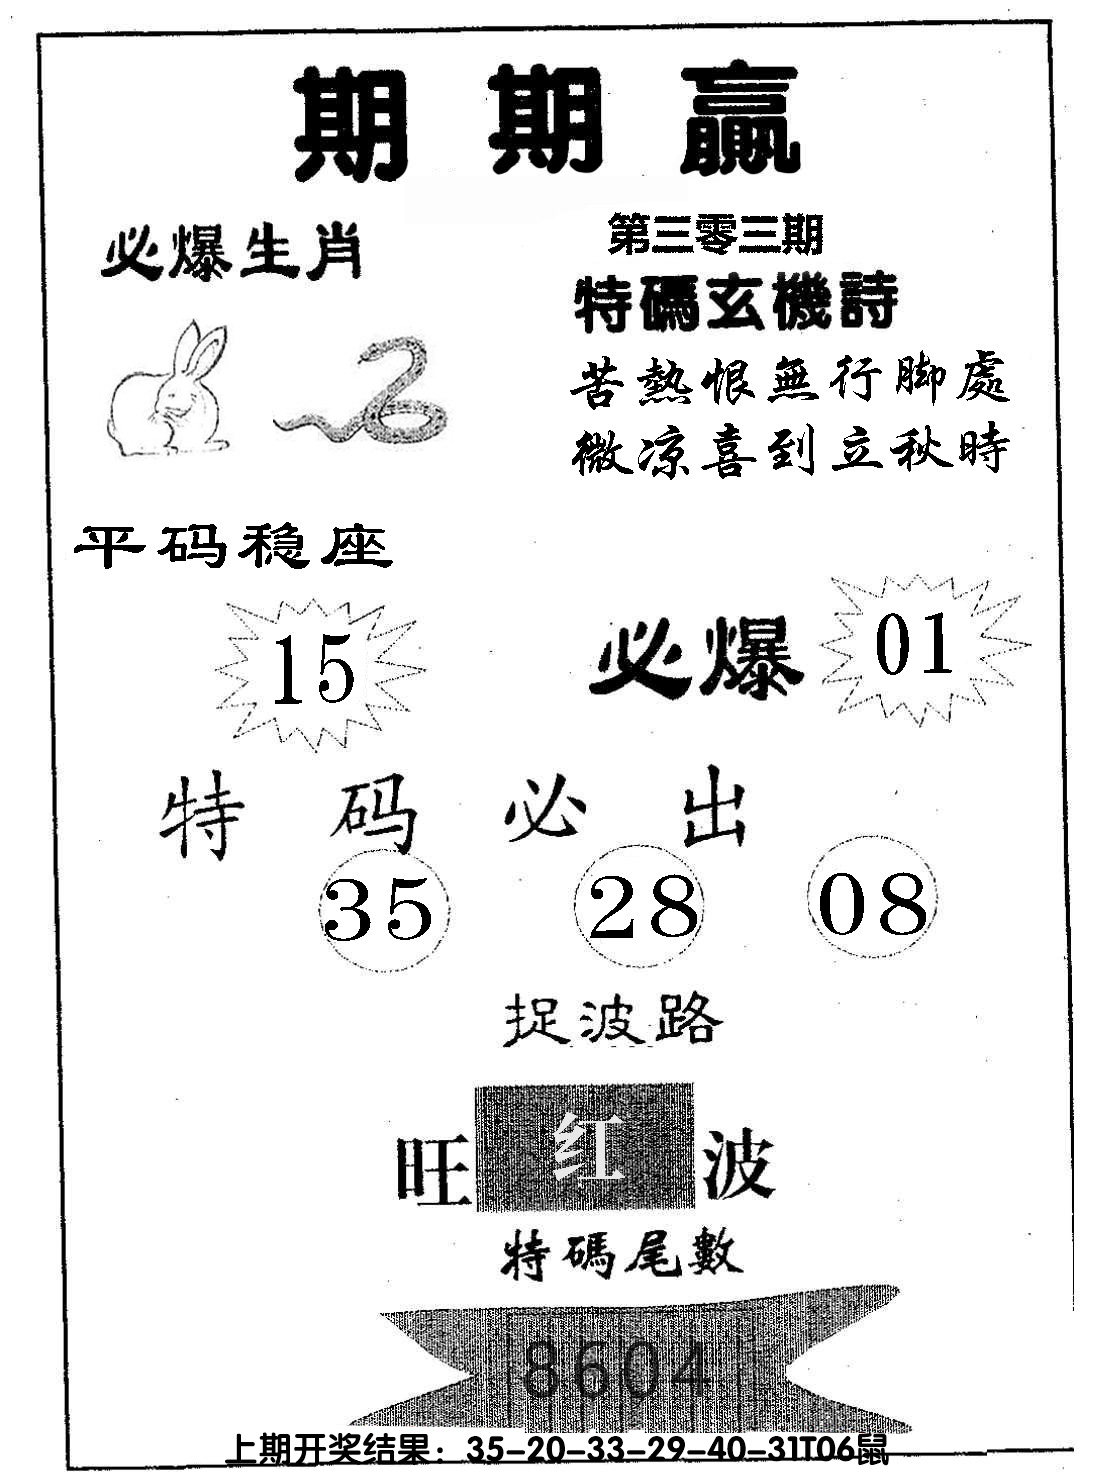 期期赢
必爆生肖
第三零三期
特碼玄機詩
苦熱恨無行脚處
微凉喜到立秋時
平码稳座
15
必爆 01
特码必出
35 28 08
捉波路
旺红波
特碼尾數
8604
上期开奖结果：35-20-33-29-40-31T06鼠